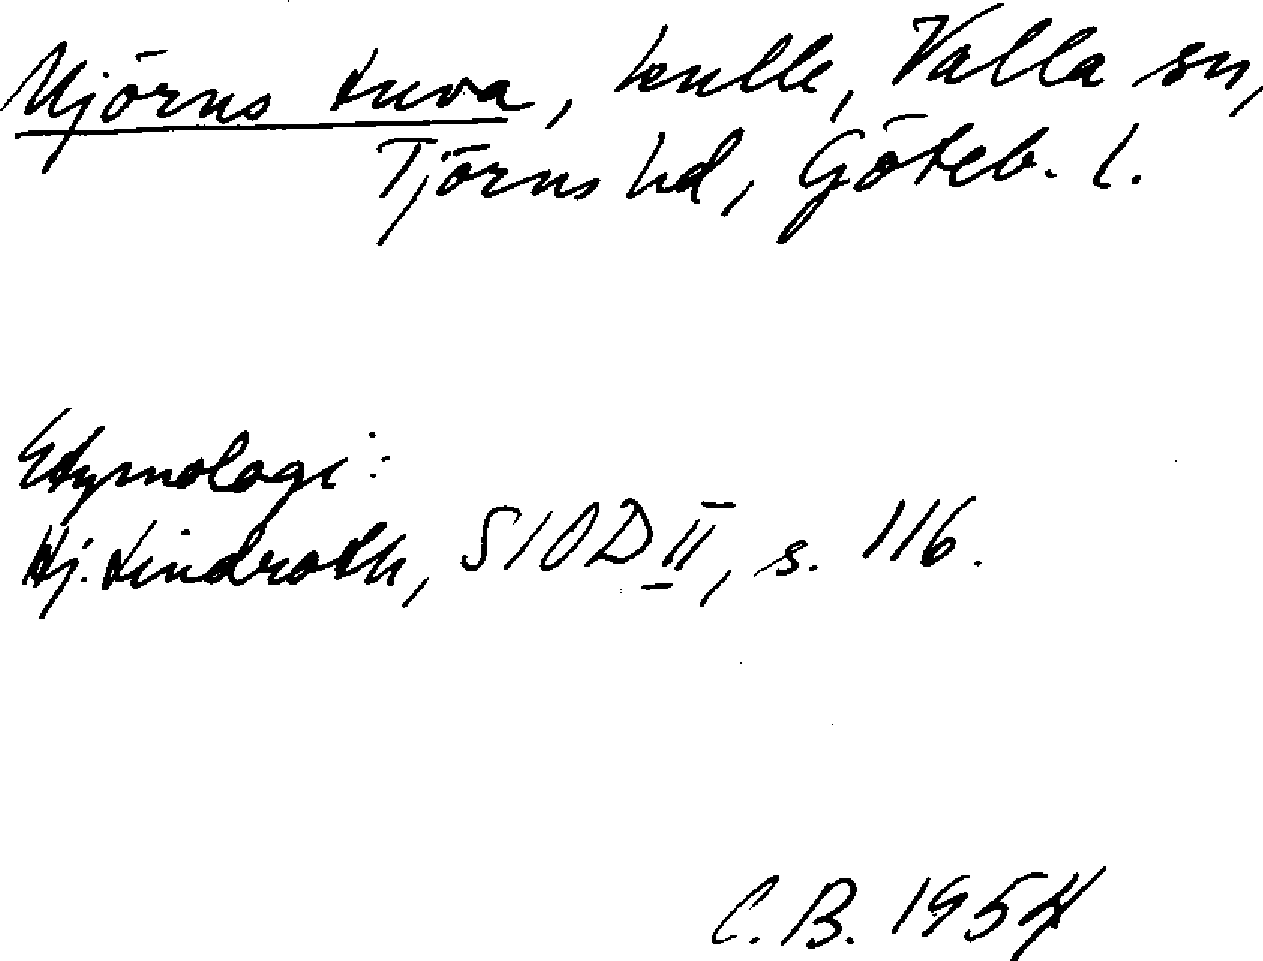 Mjörns tuva, kulle, Valla sn,
Tjörns hd, Göteb. l.
Etymologi:
Hj. Lindroth, SIOD II, s. 116.
C.B. 1954